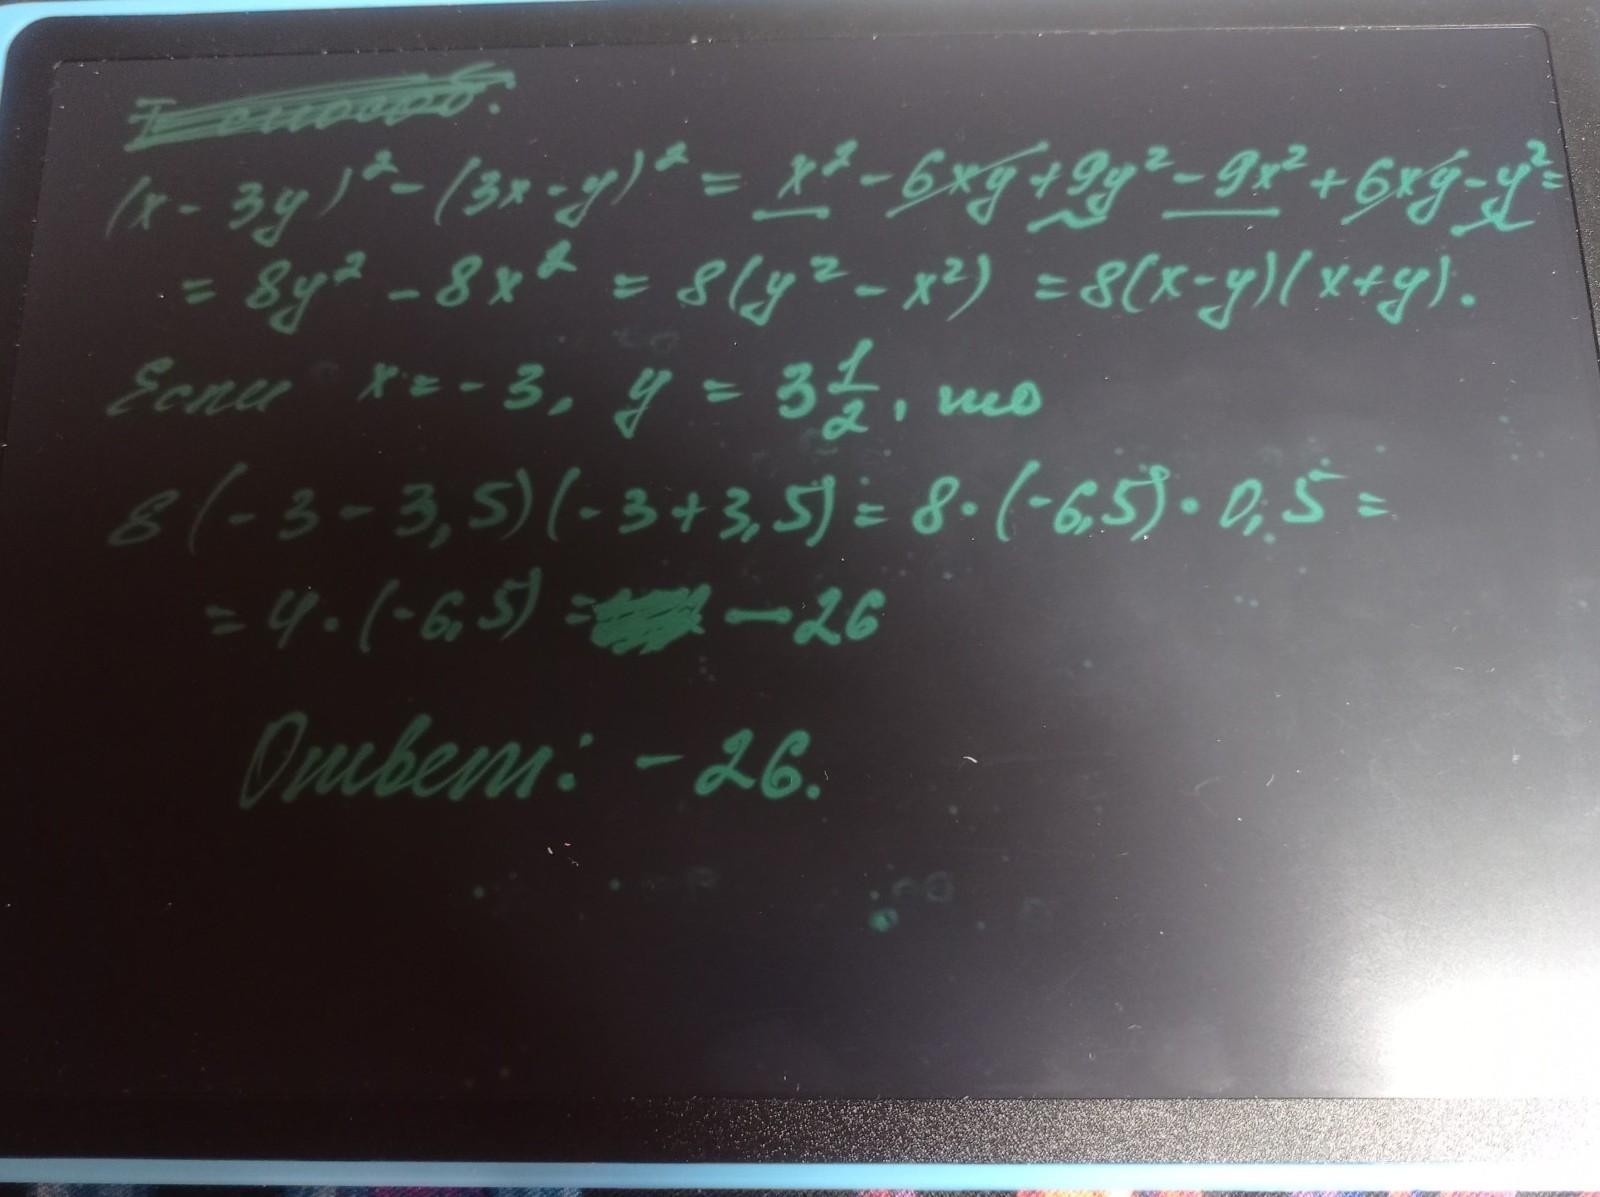 I способ.
(x - 3y)² - (3x - y)² = x² - 6xy + 9y² - 9x² + 6xy - y² =
= 8y² - 8x² = 8(y² - x²) = 8(x-y)(x+y).
Если x = -3, y = 3 1/2, то
8(-3 - 3,5)(-3 + 3,5) = 8·(-6,5)·0,5 =
= 4·(-6,5) = -26
Ответ: -26.